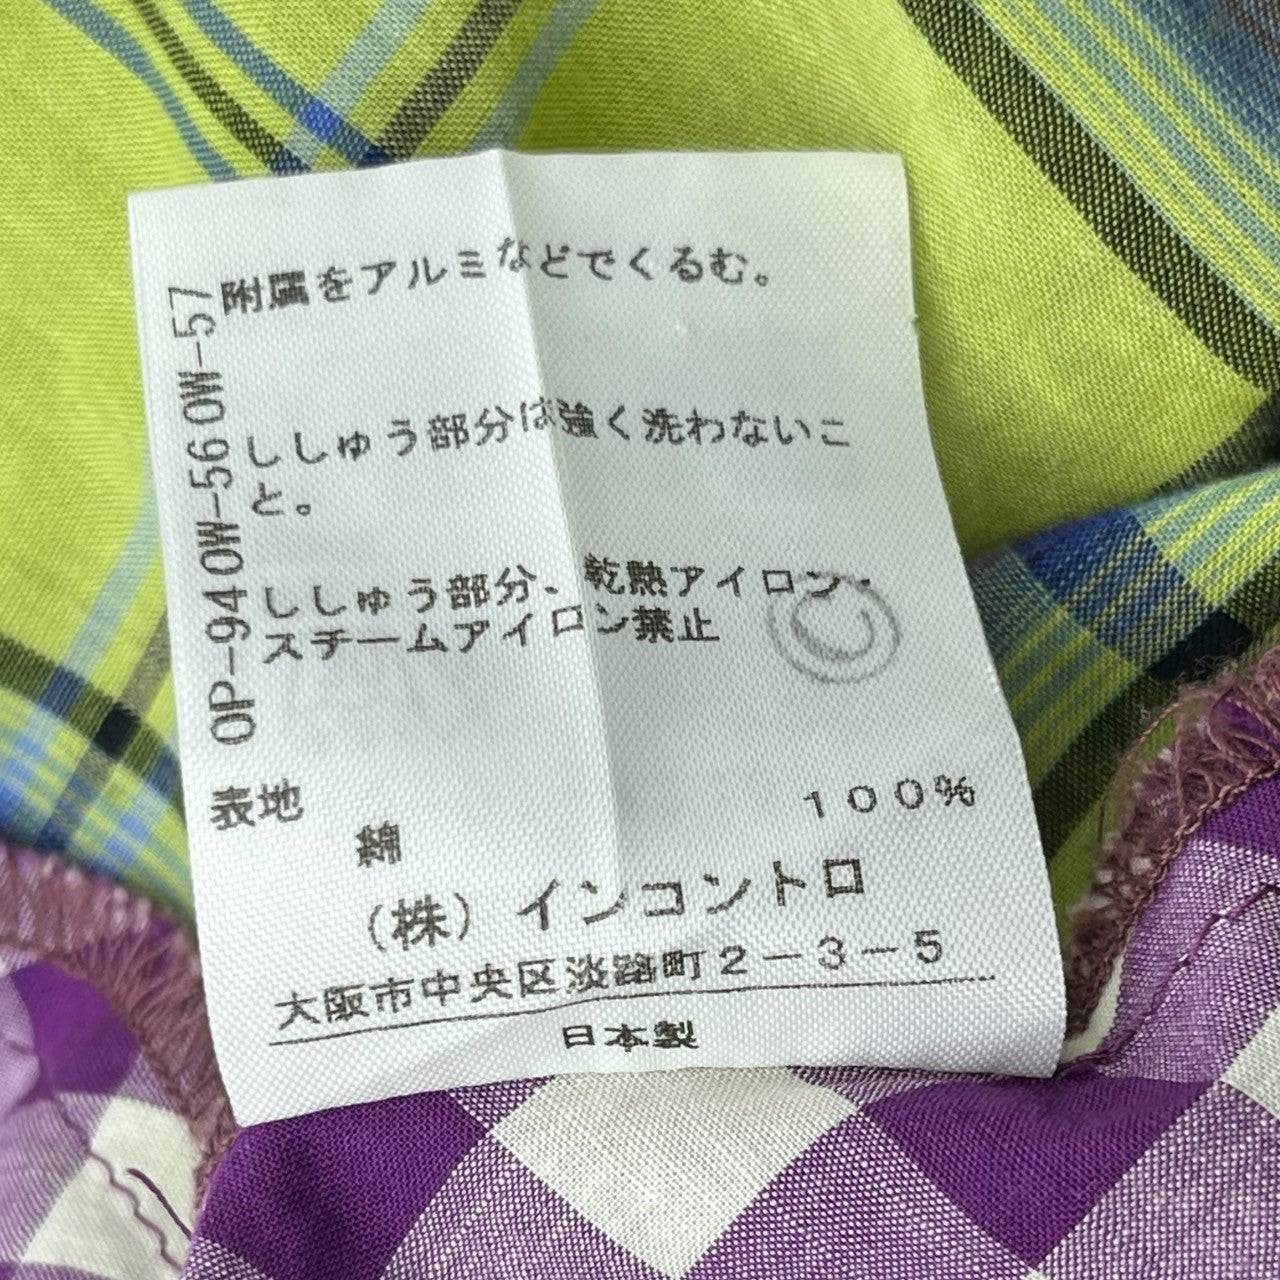 附属をアルミなどでくるむ。
ししゅう部分は強く洗わないこ
と。
ししゅう部分、乾熱アイロン・
スチームアイロン禁止
OP-94OW-56OW-57
表地
綿 100%
(株) インコントロ
大阪市中央区淡路町2-3-5
日本製